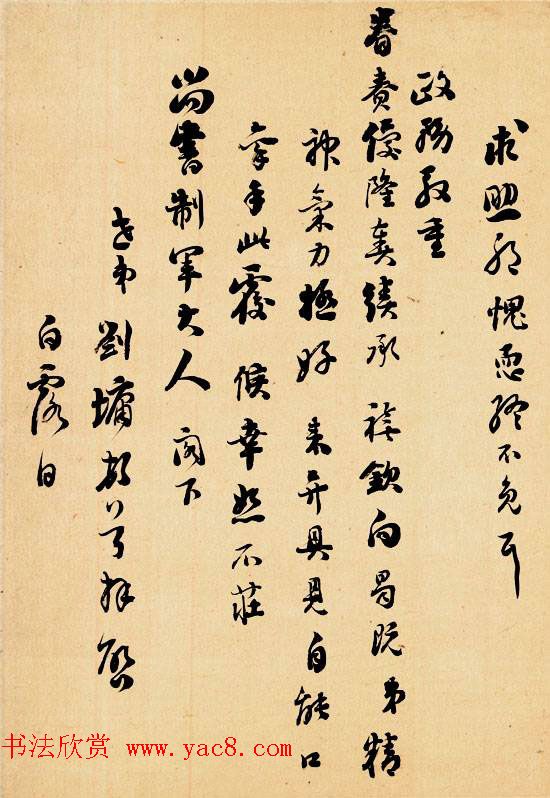 求照 愧恧 不免耳
政務殷重
眷賚優隆 績承 欽向曷既弟精
神氣力極好 来 具見自能口
手此覆候幸恕不莊
尚書制軍大人閣下
世弟劉墉 拜啓
白露日
书法欣赏 www.yac8.com